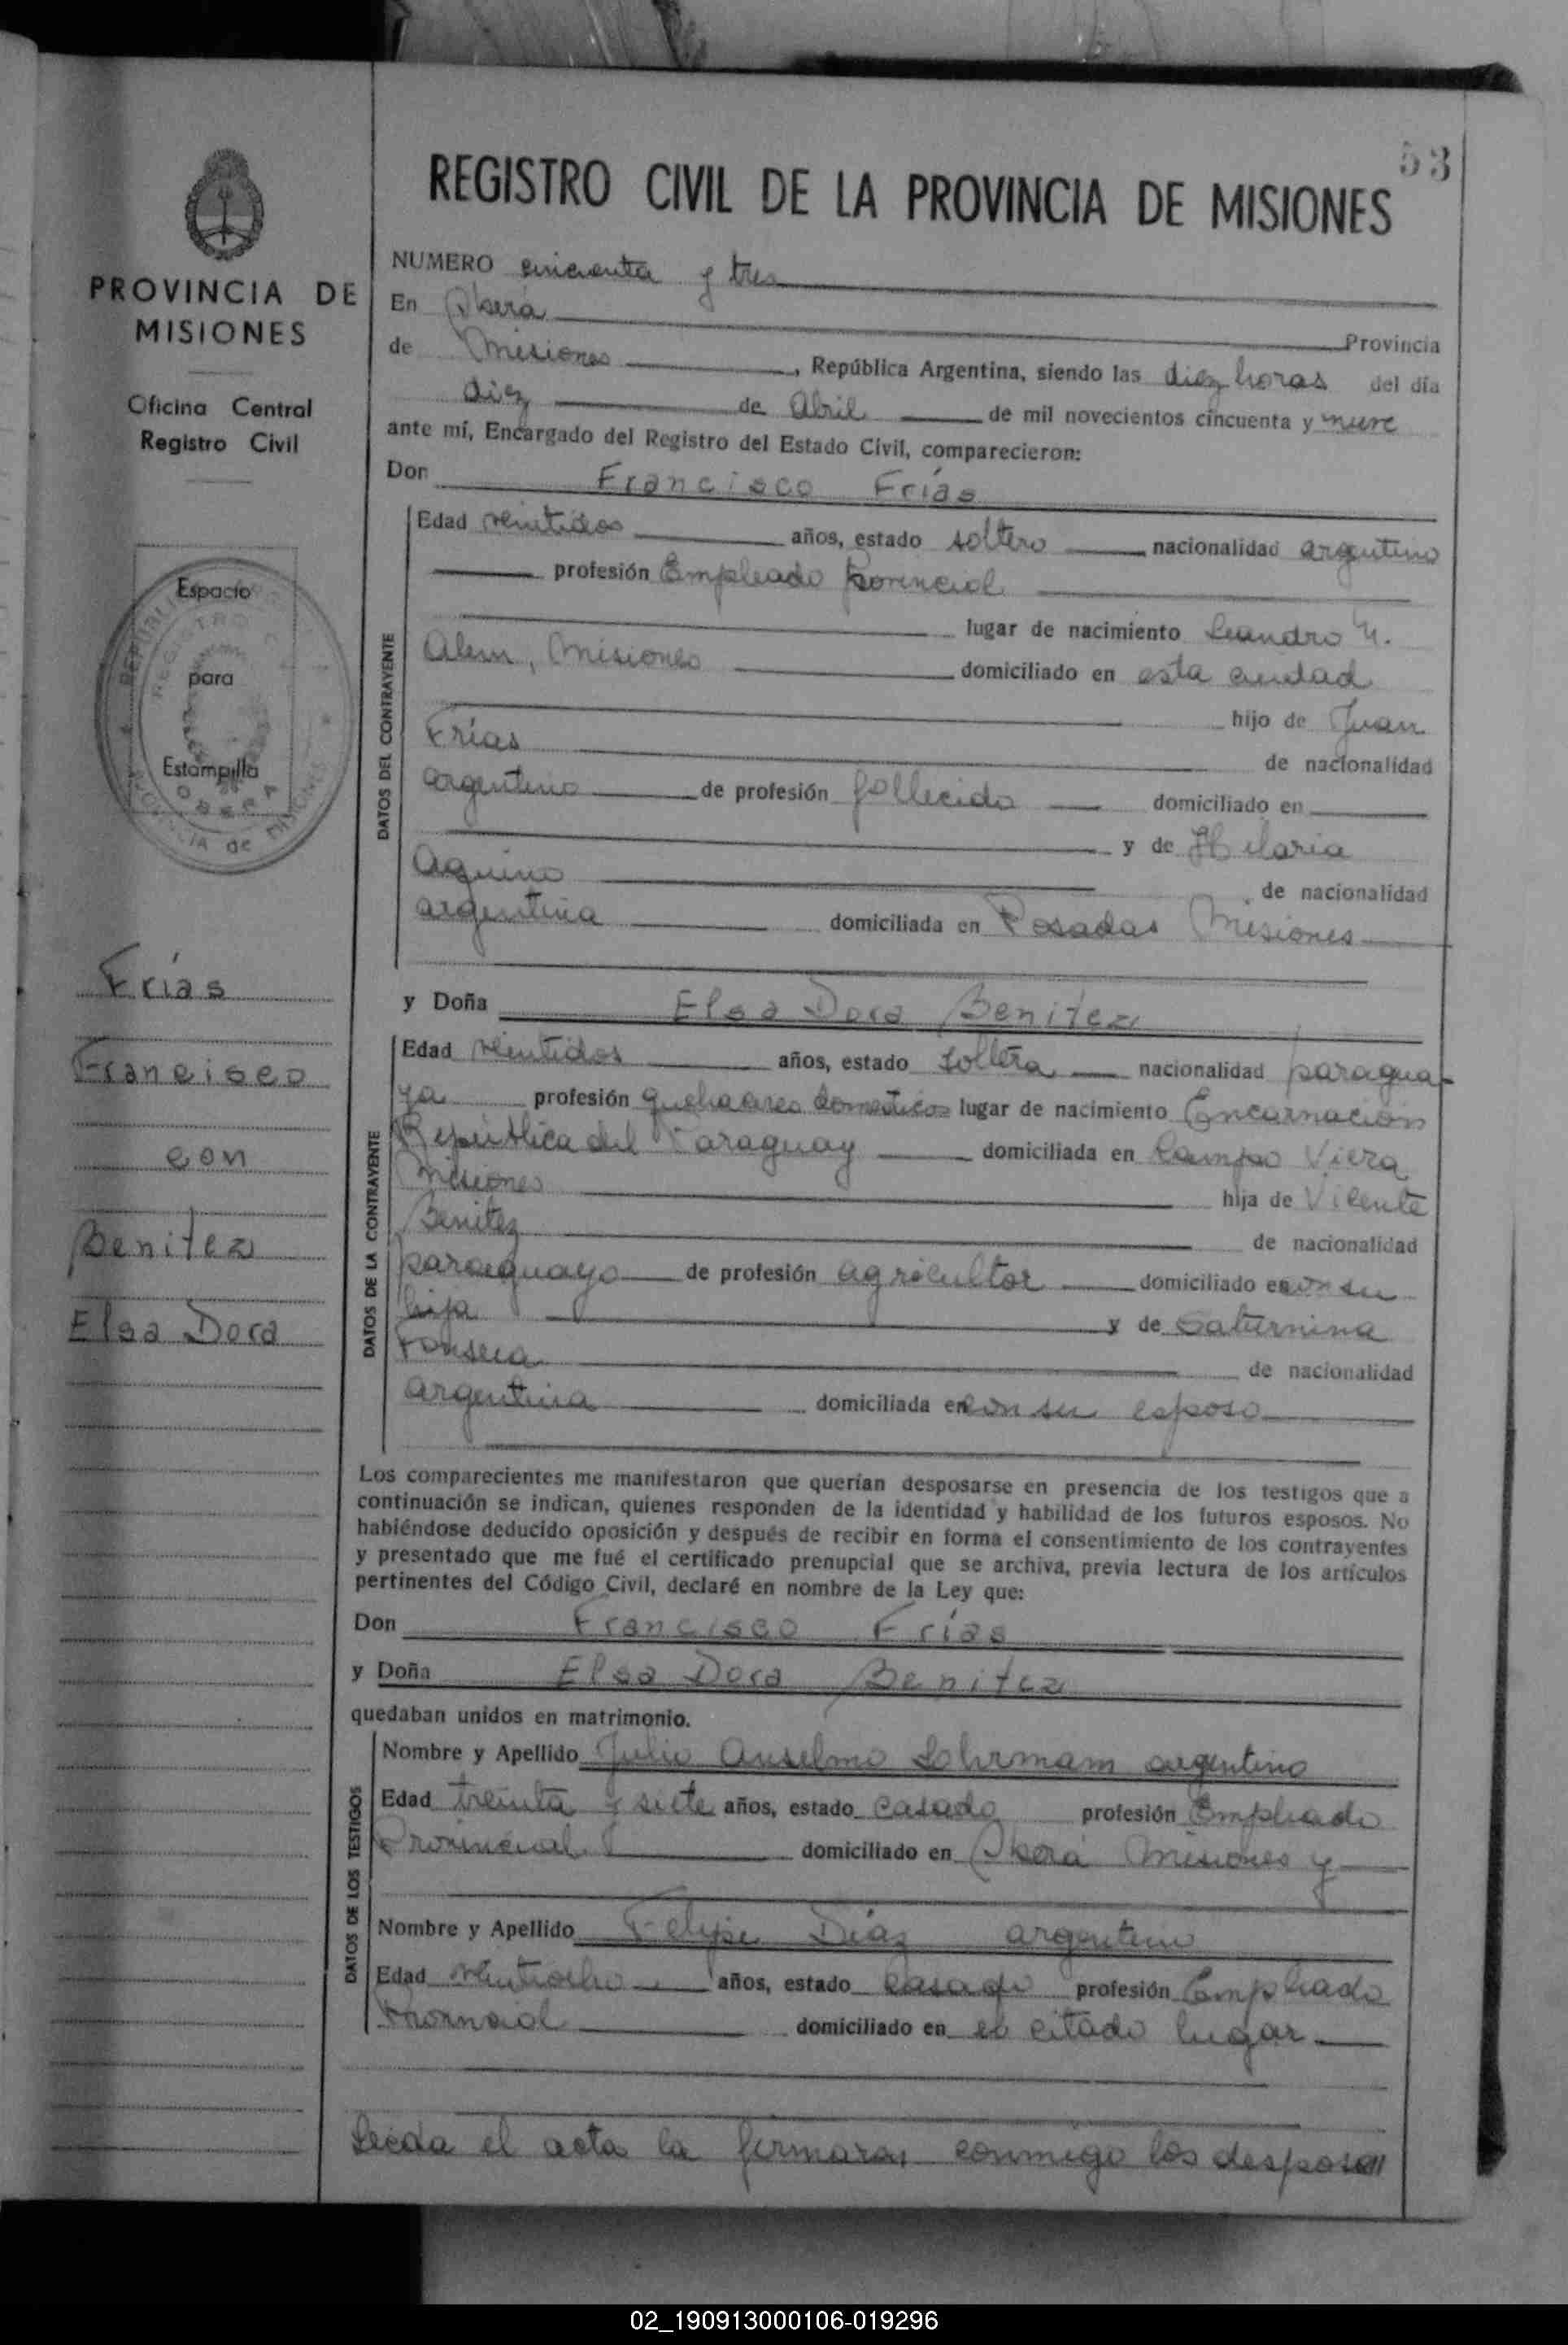 53
REGISTRO CIVIL DE LA PROVINCIA DE MISIONES
PROVINCIA DE
MISIONES
Oficina Central
Registro Civil
Espacio
para
Estampilla
OBERA
Frías
Francisco
con
Benitez
Elsa Dora
NUMERO cincuenta y tres
En Oberá Provincia
de Misiones, República Argentina, siendo las diez horas del día
diez de Abril de mil novecientos cincuenta y nueve
ante mí, Encargado del Registro del Estado Civil, comparecieron:
Don Francisco Frías
DATOS DEL CONTRAYENTE
Edad veintidos años, estado soltero nacionalidad argentino
profesión Empleado Provincial
lugar de nacimiento Leandro N.
Alem, Misiones domiciliado en esta ciudad
hijo de Juan
Frías de nacionalidad
argentino de profesión fallecido domiciliado en
y de Hilaria
Aquino de nacionalidad
argentina domiciliada en Posadas Misiones
y Doña Elsa Dora Benitez
DATOS DE LA CONTRAYENTE
Edad veintidos años, estado soltera nacionalidad paragua-
ya profesión quehaceres domesticos lugar de nacimiento Encarnación
República del Paraguay domiciliada en Campo Viera
Misiones hija de Vicente
Benitez de nacionalidad
paraguayo de profesión agricultor domiciliado en con su
hija y de Saturnina
Fonseca de nacionalidad
argentina domiciliada en con su esposo
Los comparecientes me manifestaron que querían desposarse en presencia de los testigos que a
continuación se indican, quienes responden de la identidad y habilidad de los futuros esposos. No
habiéndose deducido oposición y después de recibir en forma el consentimiento de los contrayentes
y presentado que me fué el certificado prenupcial que se archiva, previa lectura de los artículos
pertinentes del Código Civil, declaré en nombre de la Ley que:
Don Francisco Frías
y Doña Elsa Dora Benitez
quedaban unidos en matrimonio.
DATOS DE LOS TESTIGOS
Nombre y Apellido Julio Anselmo Lohrmam argentino
Edad treinta y siete años, estado casado profesión Empleado
Provincial domiciliado en Oberá Misiones y
Nombre y Apellido Felipe Diaz argentino
Edad veintiocho años, estado casado profesión Empleado
Provincial domiciliado en el citado lugar
Leida el acta la firmaran conmigo los desposa
02_190913000106-019296